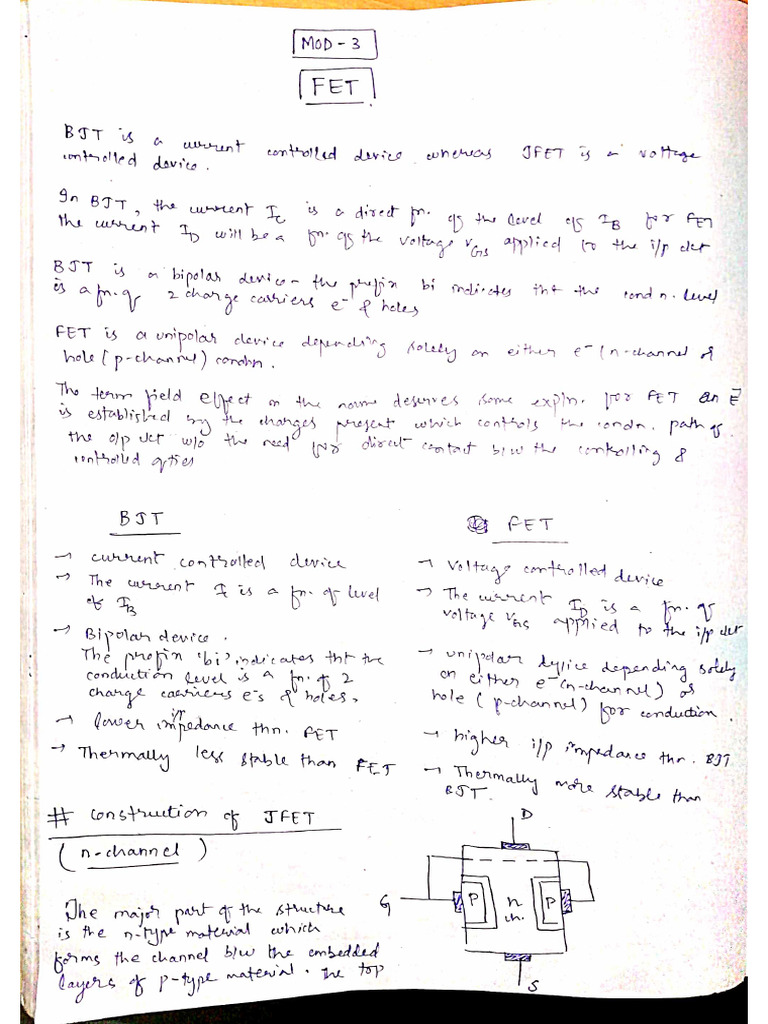 MOD-3
FET
BJT is a current controlled device whereas JFET is a voltage
controlled device.
In BJT, the current IC is a direct fn. of the level of IB for FET
the current ID will be a fn. of the voltage VGS applied to the i/p ckt
BJT is a bipolar device - the prefix bi indicates tht the condn. level
is a fn. of 2 charge carriers e- & holes
FET is a unipolar device depending solely on either e- (n-channel or
hole (p-channel) condn.
The term field effect in the name deserves some expln. for FET an E
is established by the charges present which controls the condn. path of
the o/p ckt w/o the need for direct contact b/w the controlling &
controlled qties
BJT
→ current controlled device
→ The current IC is a fn. of level
of IB
→ Bipolar device.
The prefix 'bi' indicates tht the
conduction level is a fn. of 2
charge carriers e-s & holes.
→ lower i/p impedance thn. FET
→ Thermally less stable than FET
FET
→ Voltage controlled device
→ The current ID is a fn. of
voltage VGS applied to the i/p ckt
→ unipolar depending solely
on either e- (n-channel) or
hole (p-channel) for conduction.
→ higher i/p impedance thn. BJT
→ Thermally more stable than
BJT.
# construction of JFET
(n-channel)
The major part of the structure
is the n-type material which
forms the channel b/w the embedded
layers of p-type material. The top
D
G
P
n
ch.
P
S